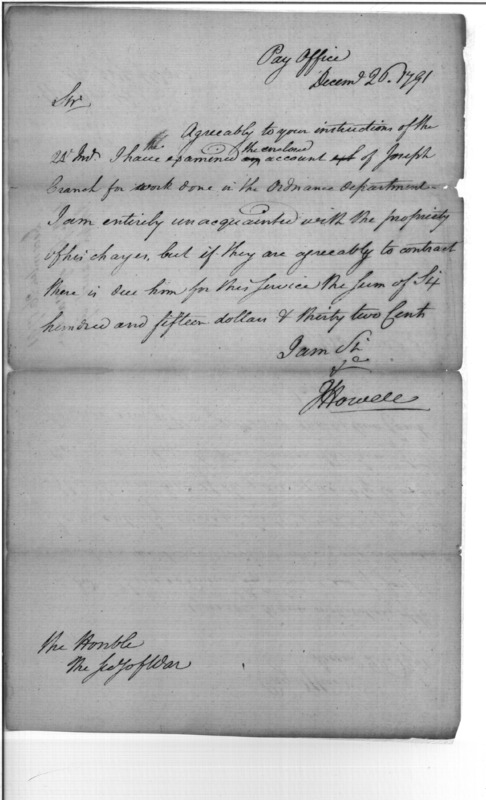 Pay Office
Decemr 26. 1791
Sir
Agreeably to your instructions of the
24 Inst. I have examined the enclosed account of Joseph
Branch for work done in the Ordnance department.
I am entirely unacquainted with the propriety
of his charges, but if they are agreeably to contract
there is due him for this service the Sum of Six
hundred and fifteen dollars & thirty two Cents
I am Sir
&c
JHowell
The Honble
The Secy of War